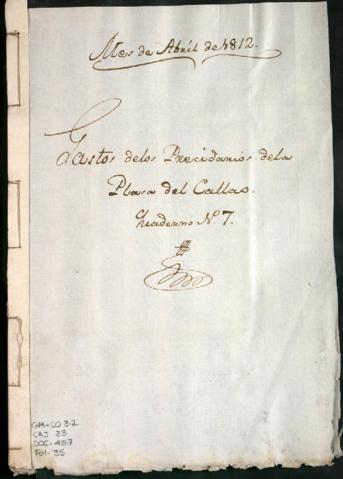 Mes de Abril de 1812.
Gastos delos Precidarios dela
Plasa del Callao.
Quaderno N. 7.
GM-CO 3.2
CAJ 33
DOC. 457
Fol. 35